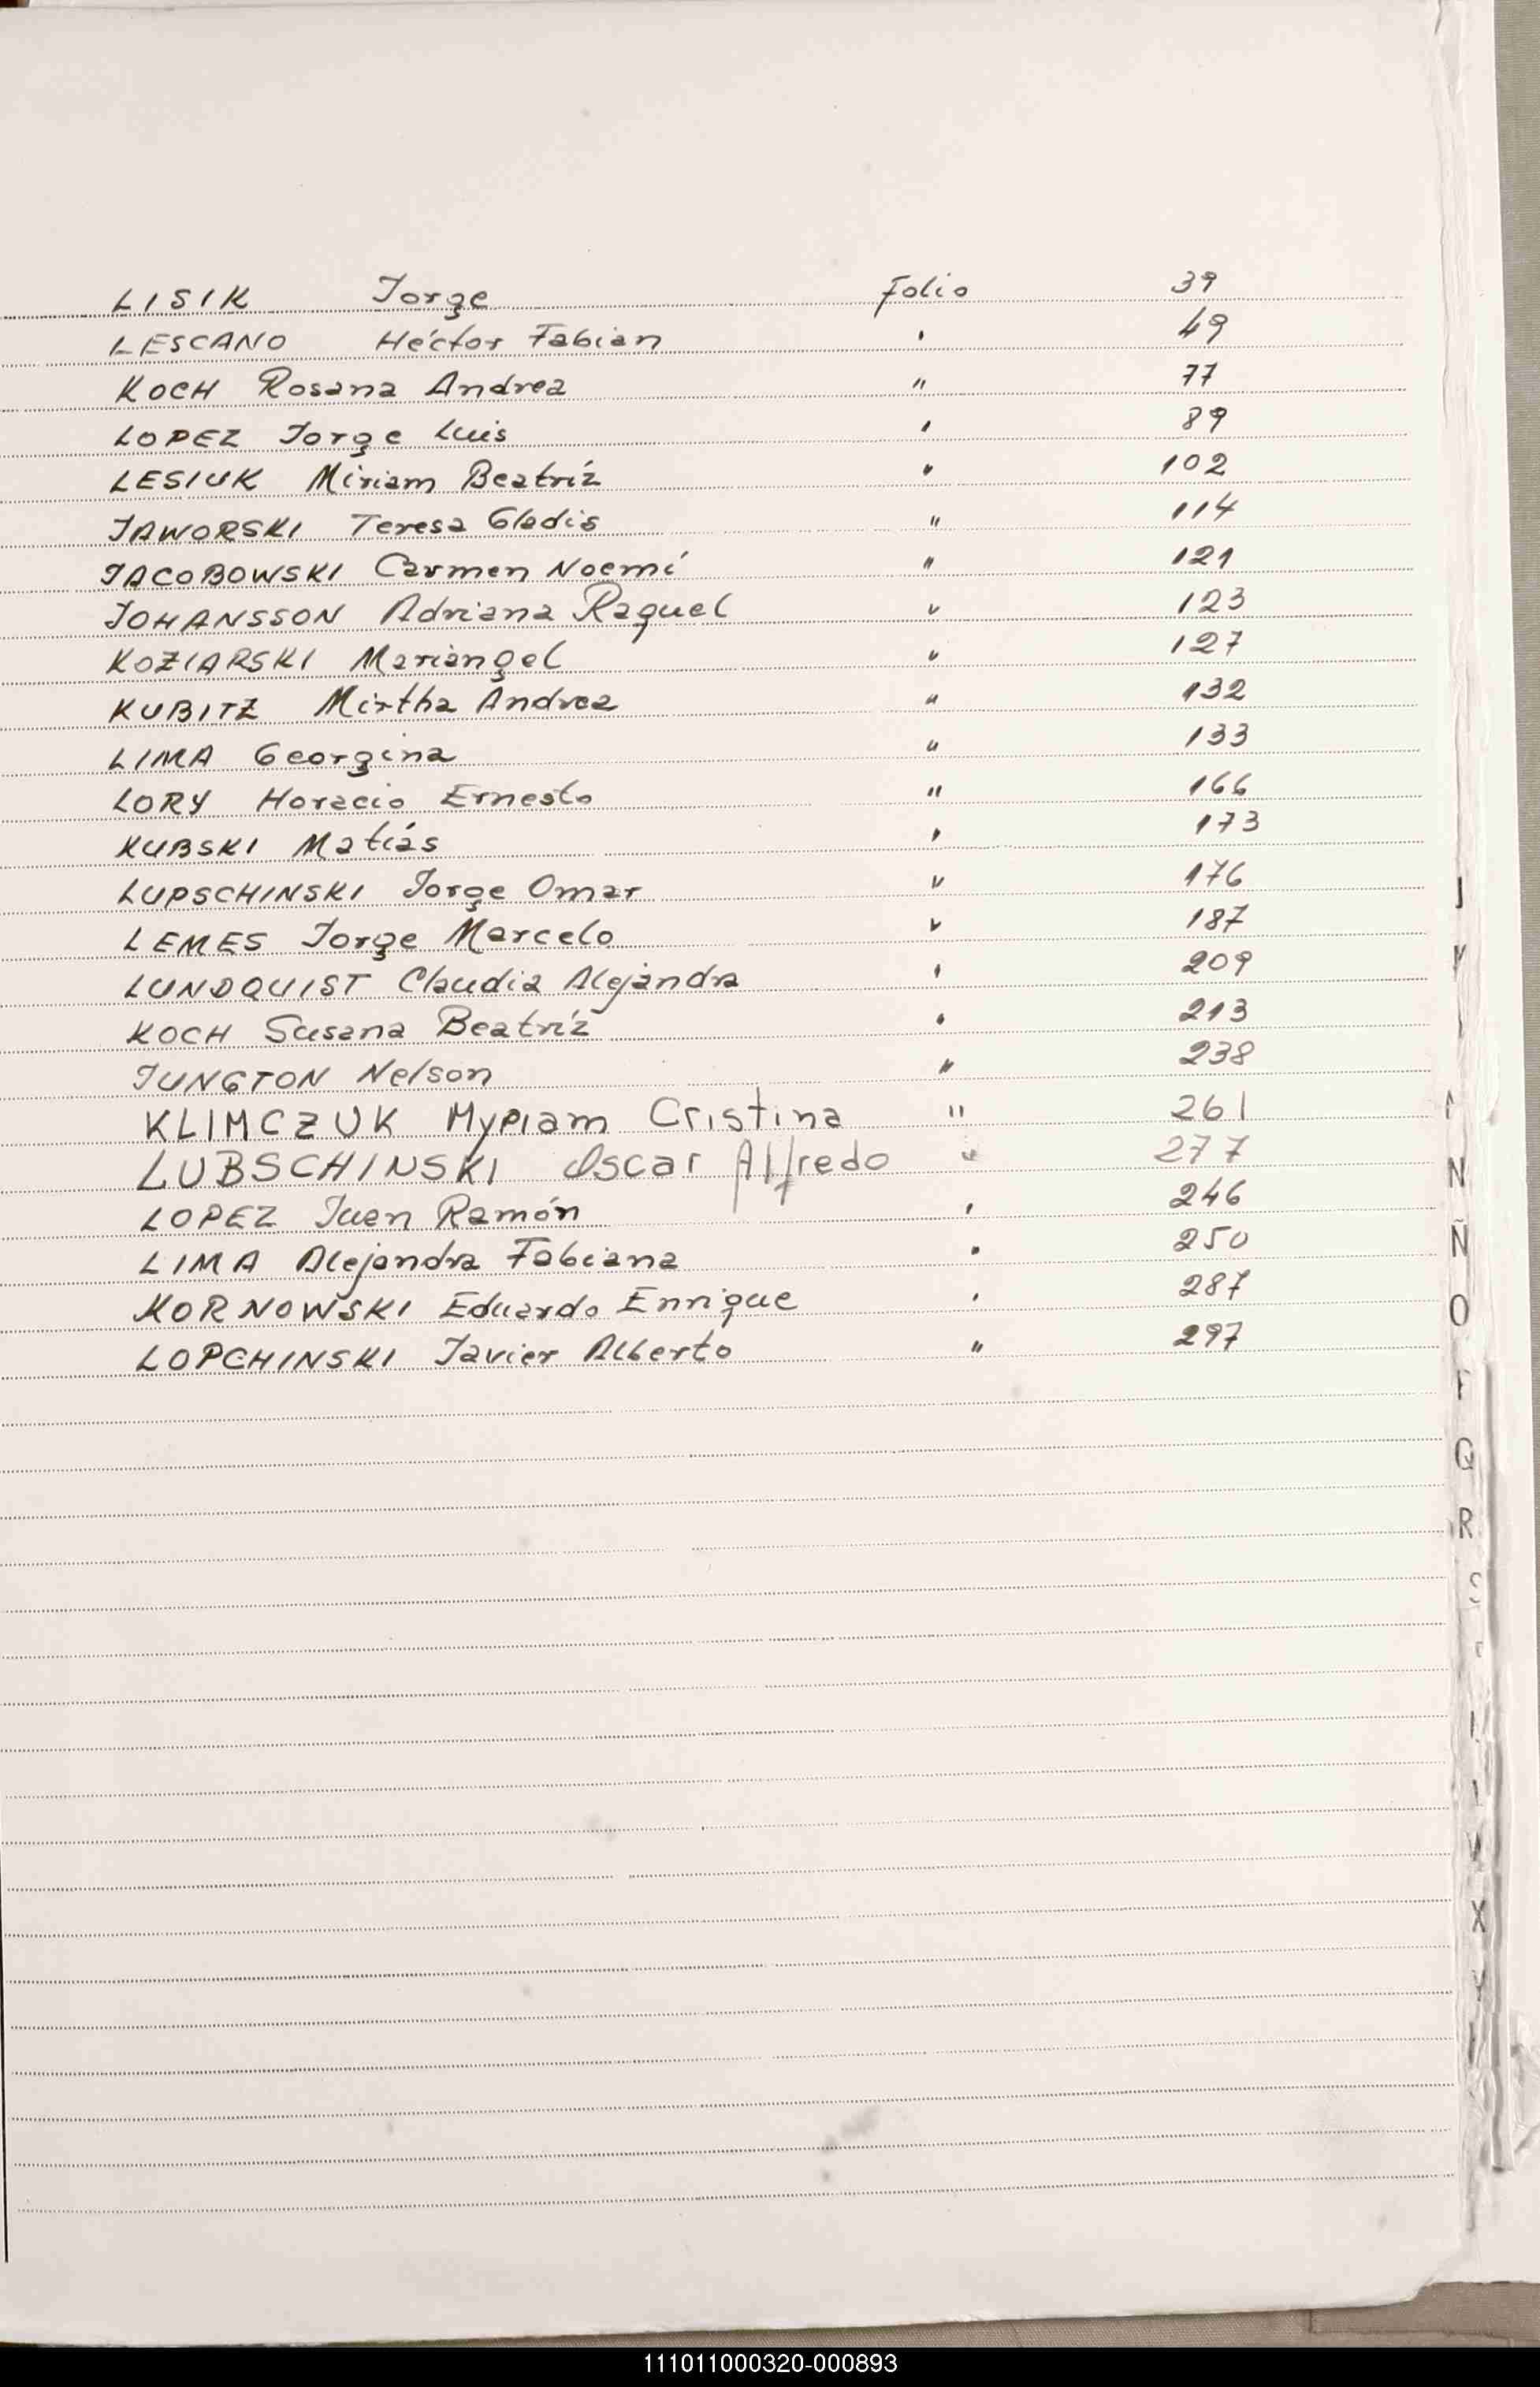 LISIK Jorge Folio 39
LESCANO Héctor Fabian " 49
KOCH Rosana Andrea " 77
LOPEZ Jorge Luis " 89
LESIUK Miriam Beatríz " 102
JAWORSKI Teresa Gladis " 114
JACOBOWSKI Carmen Noemí " 121
JOHANSSON Adriana Raquel " 123
KOZIARSKI Mariangel " 127
KUBITZ Mirtha Andrea " 132
LIMA Georgina " 133
LORY Horacio Ernesto " 166
KUBSKI Matías " 173
LUPSCHINSKI Jorge Omar " 176
LEMES Jorge Marcelo " 187
LUNDQUIST Claudia Alejandra " 209
KOCH Susana Beatríz " 213
JUNGTON Nelson " 238
KLIMCZUK Myriam Cristina " 261
LUBSCHINSKI Oscar Alfredo " 277
LOPEZ Juan Ramón " 246
LIMA Alejandra Fabiana " 250
KORNOWSKI Eduardo Enrique " 287
LOPCHINSKI Javier Alberto " 297
J
N
Ñ
O
Q
R
S
X
Y
111011000320-000893